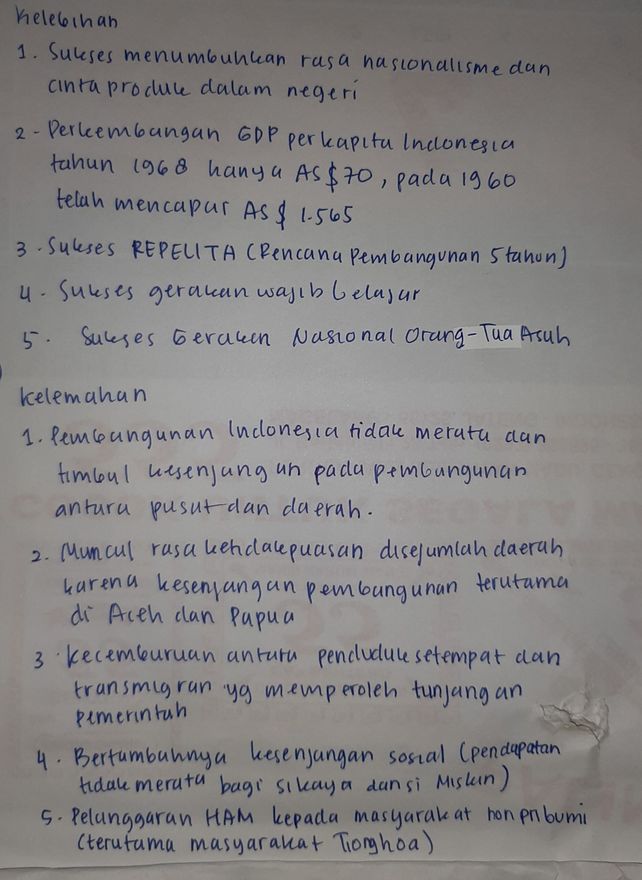 Kelebihan
1. Sukses menumbuhkan rasa nasionalisme dan
cinta produk dalam negeri
2- Perkembangan GDP perkapita Indonesia
tahun 1968 hanya AS$70, pada 1960
telah mencapai AS$ 1.565
3. Sukses REPELITA (Rencana Pembangunan 5 tahun)
4- Sukses gerakan wajib belajar
5. Sukses Gerakan Nasional Orang-Tua Asuh
Kelemahan
1. Pembangunan Indonesia tidak merata dan
timbul kesenjangan pada pembangunan
antara pusat dan daerah.
2. Muncul rasa ketidakpuasan disejumlah daerah
karena kesenjangan pembangunan terutama
di Aceh dan Papua
3. Kecemburuan antara penduduk setempat dan
transmigran yg memperoleh tunjangan
pemerintah
4. Bertambahnya kesenjangan sosial (pendapatan
tidak merata bagi si kaya dan si Miskin)
5. Pelanggaran HAM kepada masyarakat non pribumi
(terutama masyarakat Tionghoa)